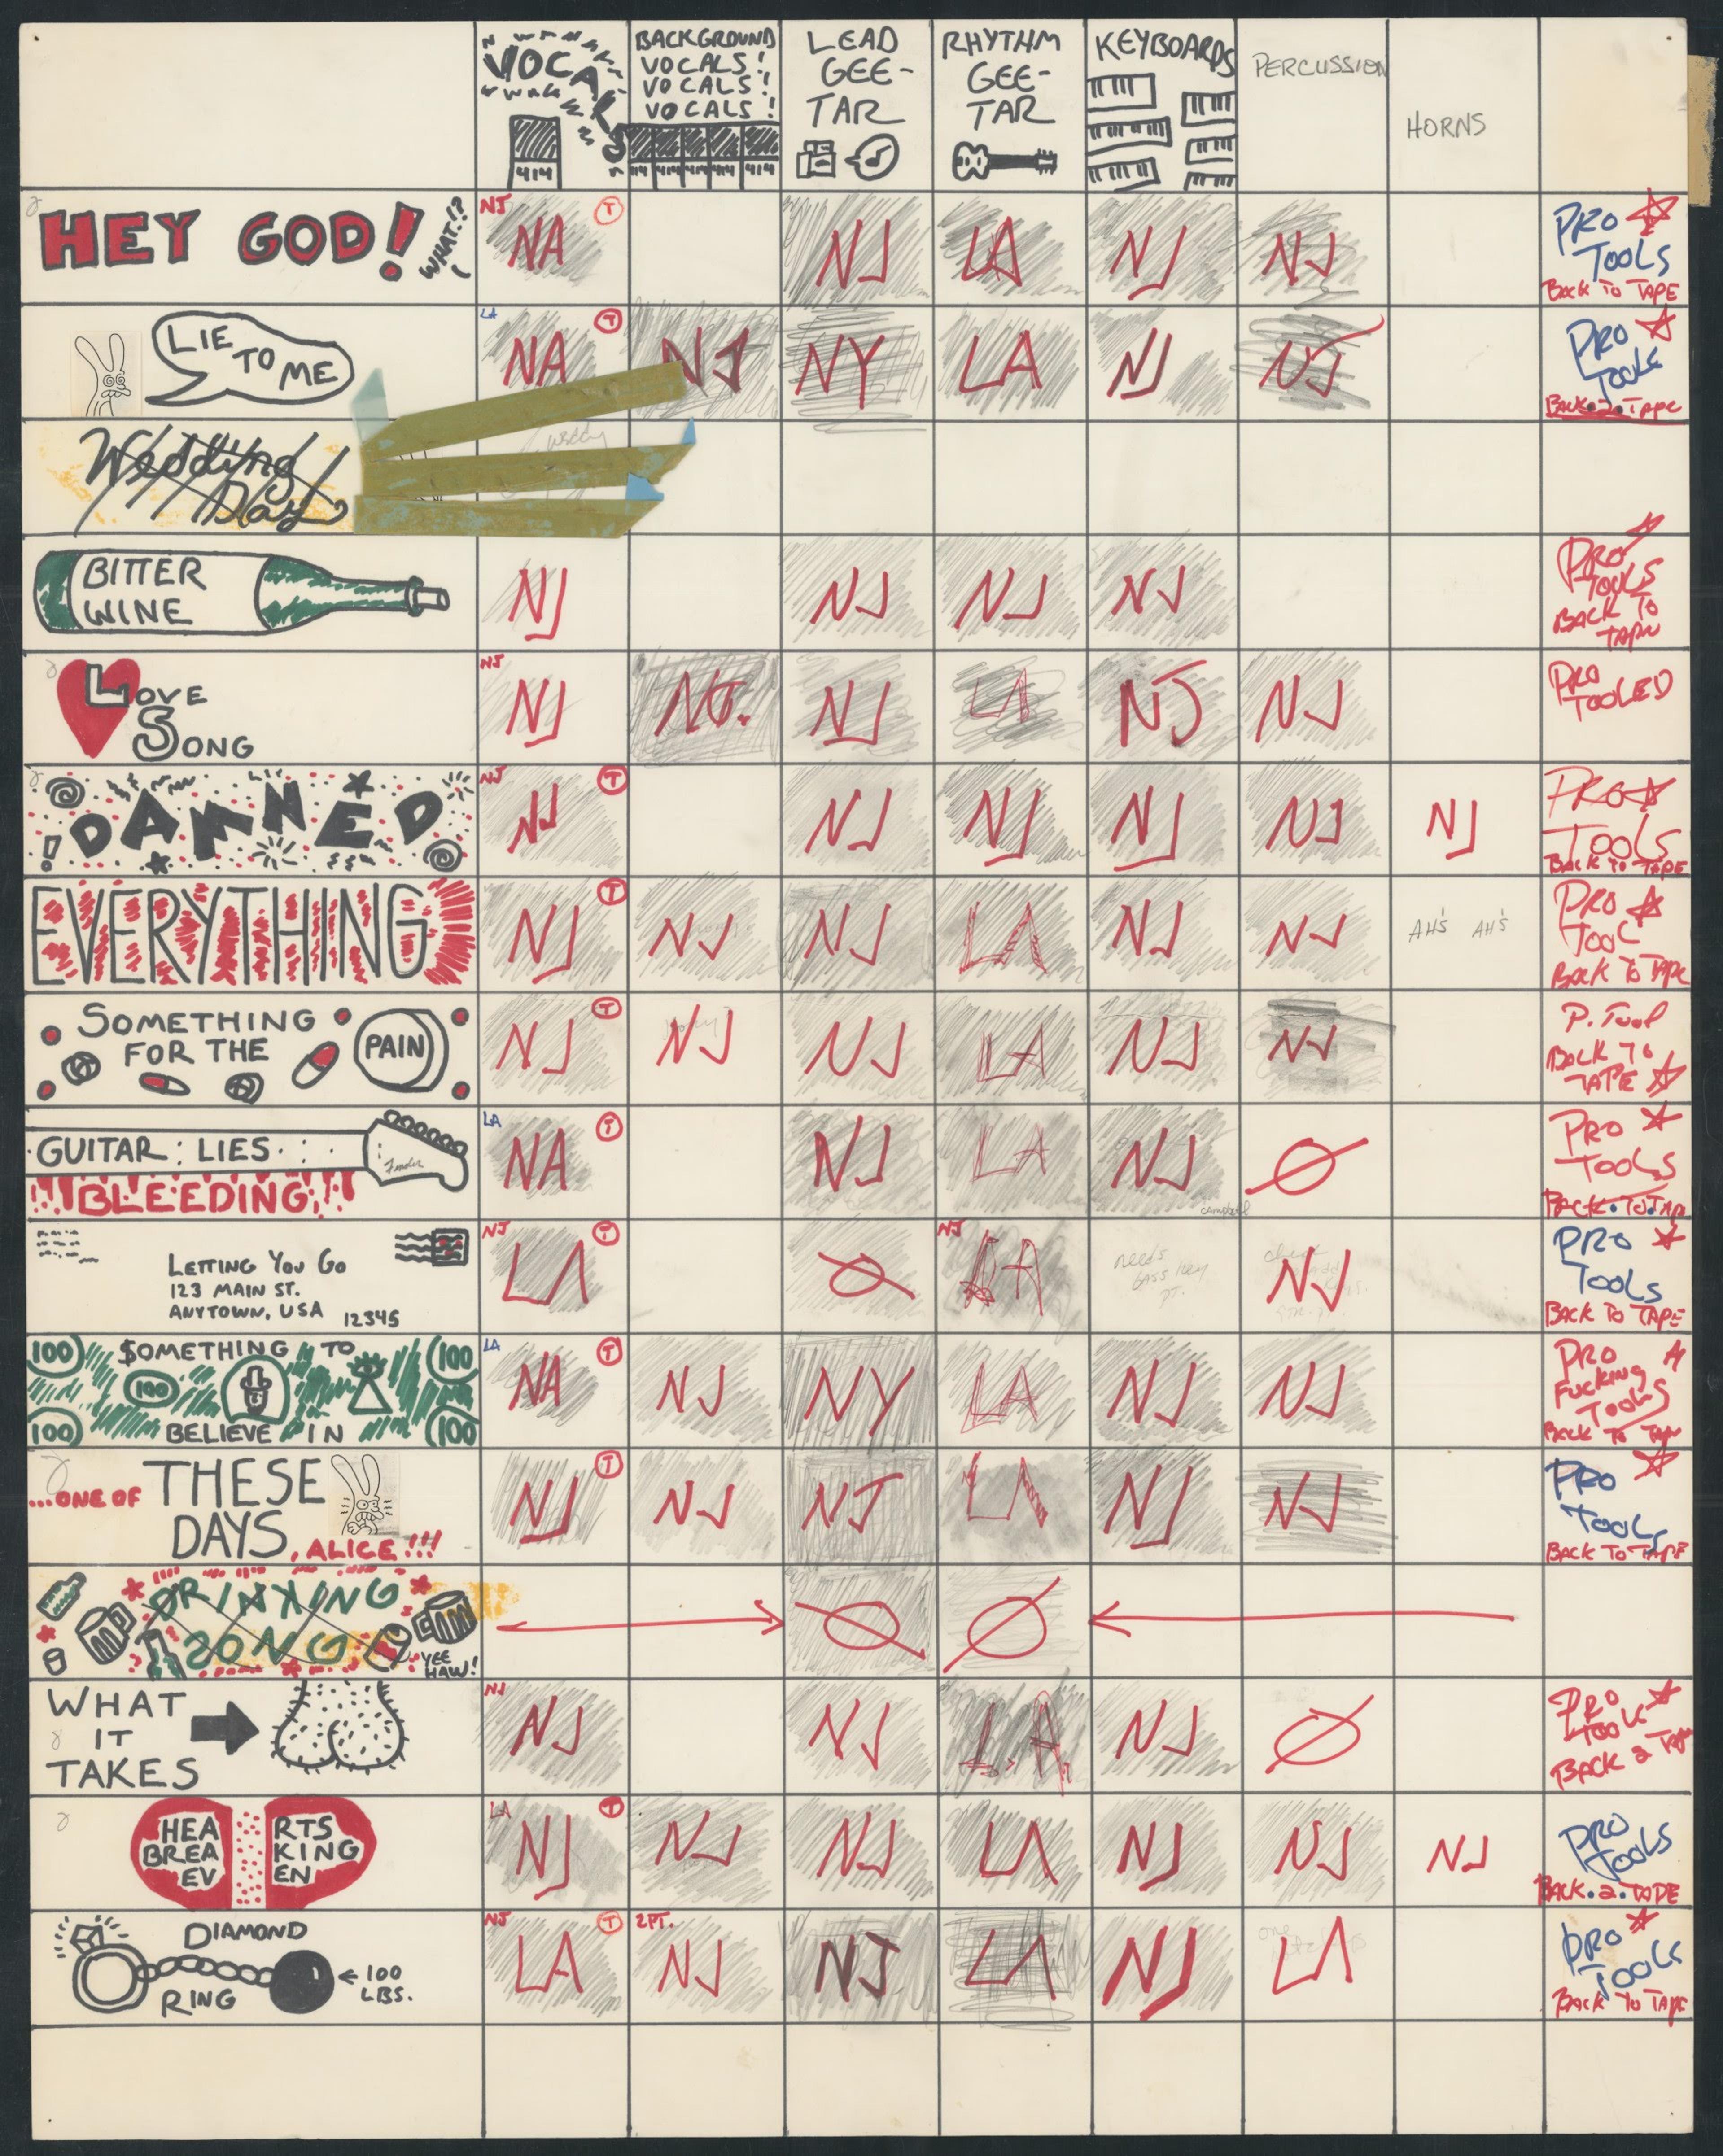 VOCALS
414
BACKGROUND
VOCALS!
VOCALS!
VOCALS!
414 414 414 414 414
LEAD
GEE-
TAR
RHYTHM
GEE-
TAR
KEYBOARDS
PERCUSSION
HORNS
HEY GOD! WHAT!?
NJ NA T NJ LA NJ NJ
PRO
TOOLS
BACK TO TAPE
LIE
TO
ME
LA NA T NJ NY LA NJ NJ
PRO
TOOLS
BACK•2•TAPE
Wedding
Day
BITTER
WINE
NJ NJ NJ NJ
PRO
TOOLS
BACK TO
TAPE
LOVE
SONG
NJ NJ NJ. NJ LA NJ NJ
PRO
TOOLED
DAMNED
NJ NJ T NJ NJ NJ NJ NJ
PRO
TOOLS
BACK TO TAPE
EVERYTHING
NJ T NJ NJ LA NJ NJ AH'S AH'S
PRO
TOOL
BACK TO TAPE
SOMETHING
FOR THE
PAIN
NJ T NJ NJ LA NJ NJ
P. Tool
BACK TO
TAPE
GUITAR: LIES
Fender
BLEEDING!!
LA NA T NJ LA NJ Ø
campbell
PRO
TOOLS
BACK•TO•TAPE
LETTING YOU GO
123 MAIN ST.
ANYTOWN, USA 12345
NJ LA T Ø NJ LA
needs
bass key
PT.
NJ
PRO
TOOLS
BACK TO TAPE
100 $OMETHING TO 100
100
100 BELIEVE IN 100
LA NA T NJ NY LA NJ NJ
PRO
FUCKING
TOOLS
BACK TO TAPE
...ONE OF THESE
DAYS, ALICE!!!
NJ T NJ NJ LA NJ NJ
PRO
TOOLS
BACK TO TAPE
DRINKING
SONG
YEE
HAW!
Ø Ø
WHAT
IT
TAKES
NJ NJ NJ L.A. NJ Ø
PRO
TOOLS
BACK 2 TAPE
HEA RTS
BREA KING
EV EN
LA NJ T NJ NJ LA NJ NJ NJ
PRO
TOOLS
BACK•2•TAPE
DIAMOND
RING
← 100
LBS.
NJ LA T 2PT. NJ NJ LA NJ LA
PRO
TOOLS
BACK TO TAPE